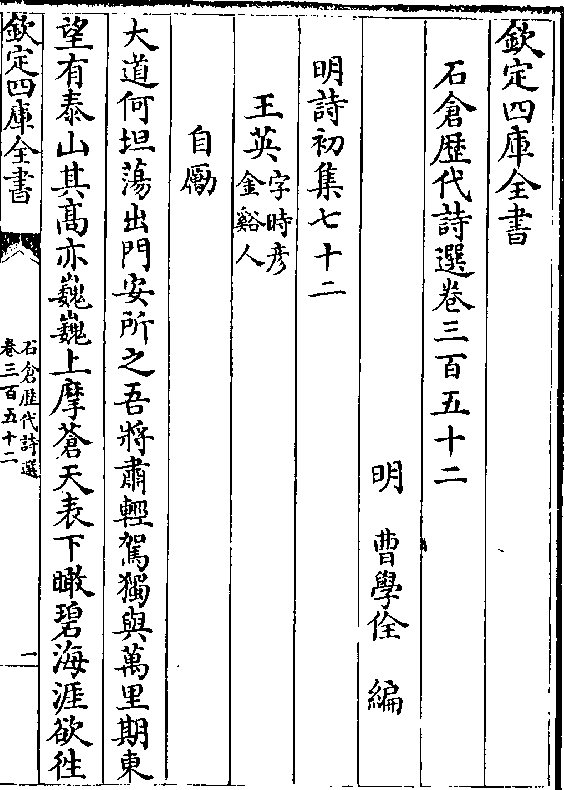 欽定四庫全書
石倉歴代詩選卷三百五十二
明 曹學佺 編
明詩初集七十二
王英字時彦金谿人
自勵
大道何坦蕩出門安所之吾將肅輕駕獨與萬里期東
望有泰山其髙亦巍巍上摩蒼天表下瞰碧海涯欲徃
欽定四庫全書
石倉歴代詩選
卷三百五十二
一